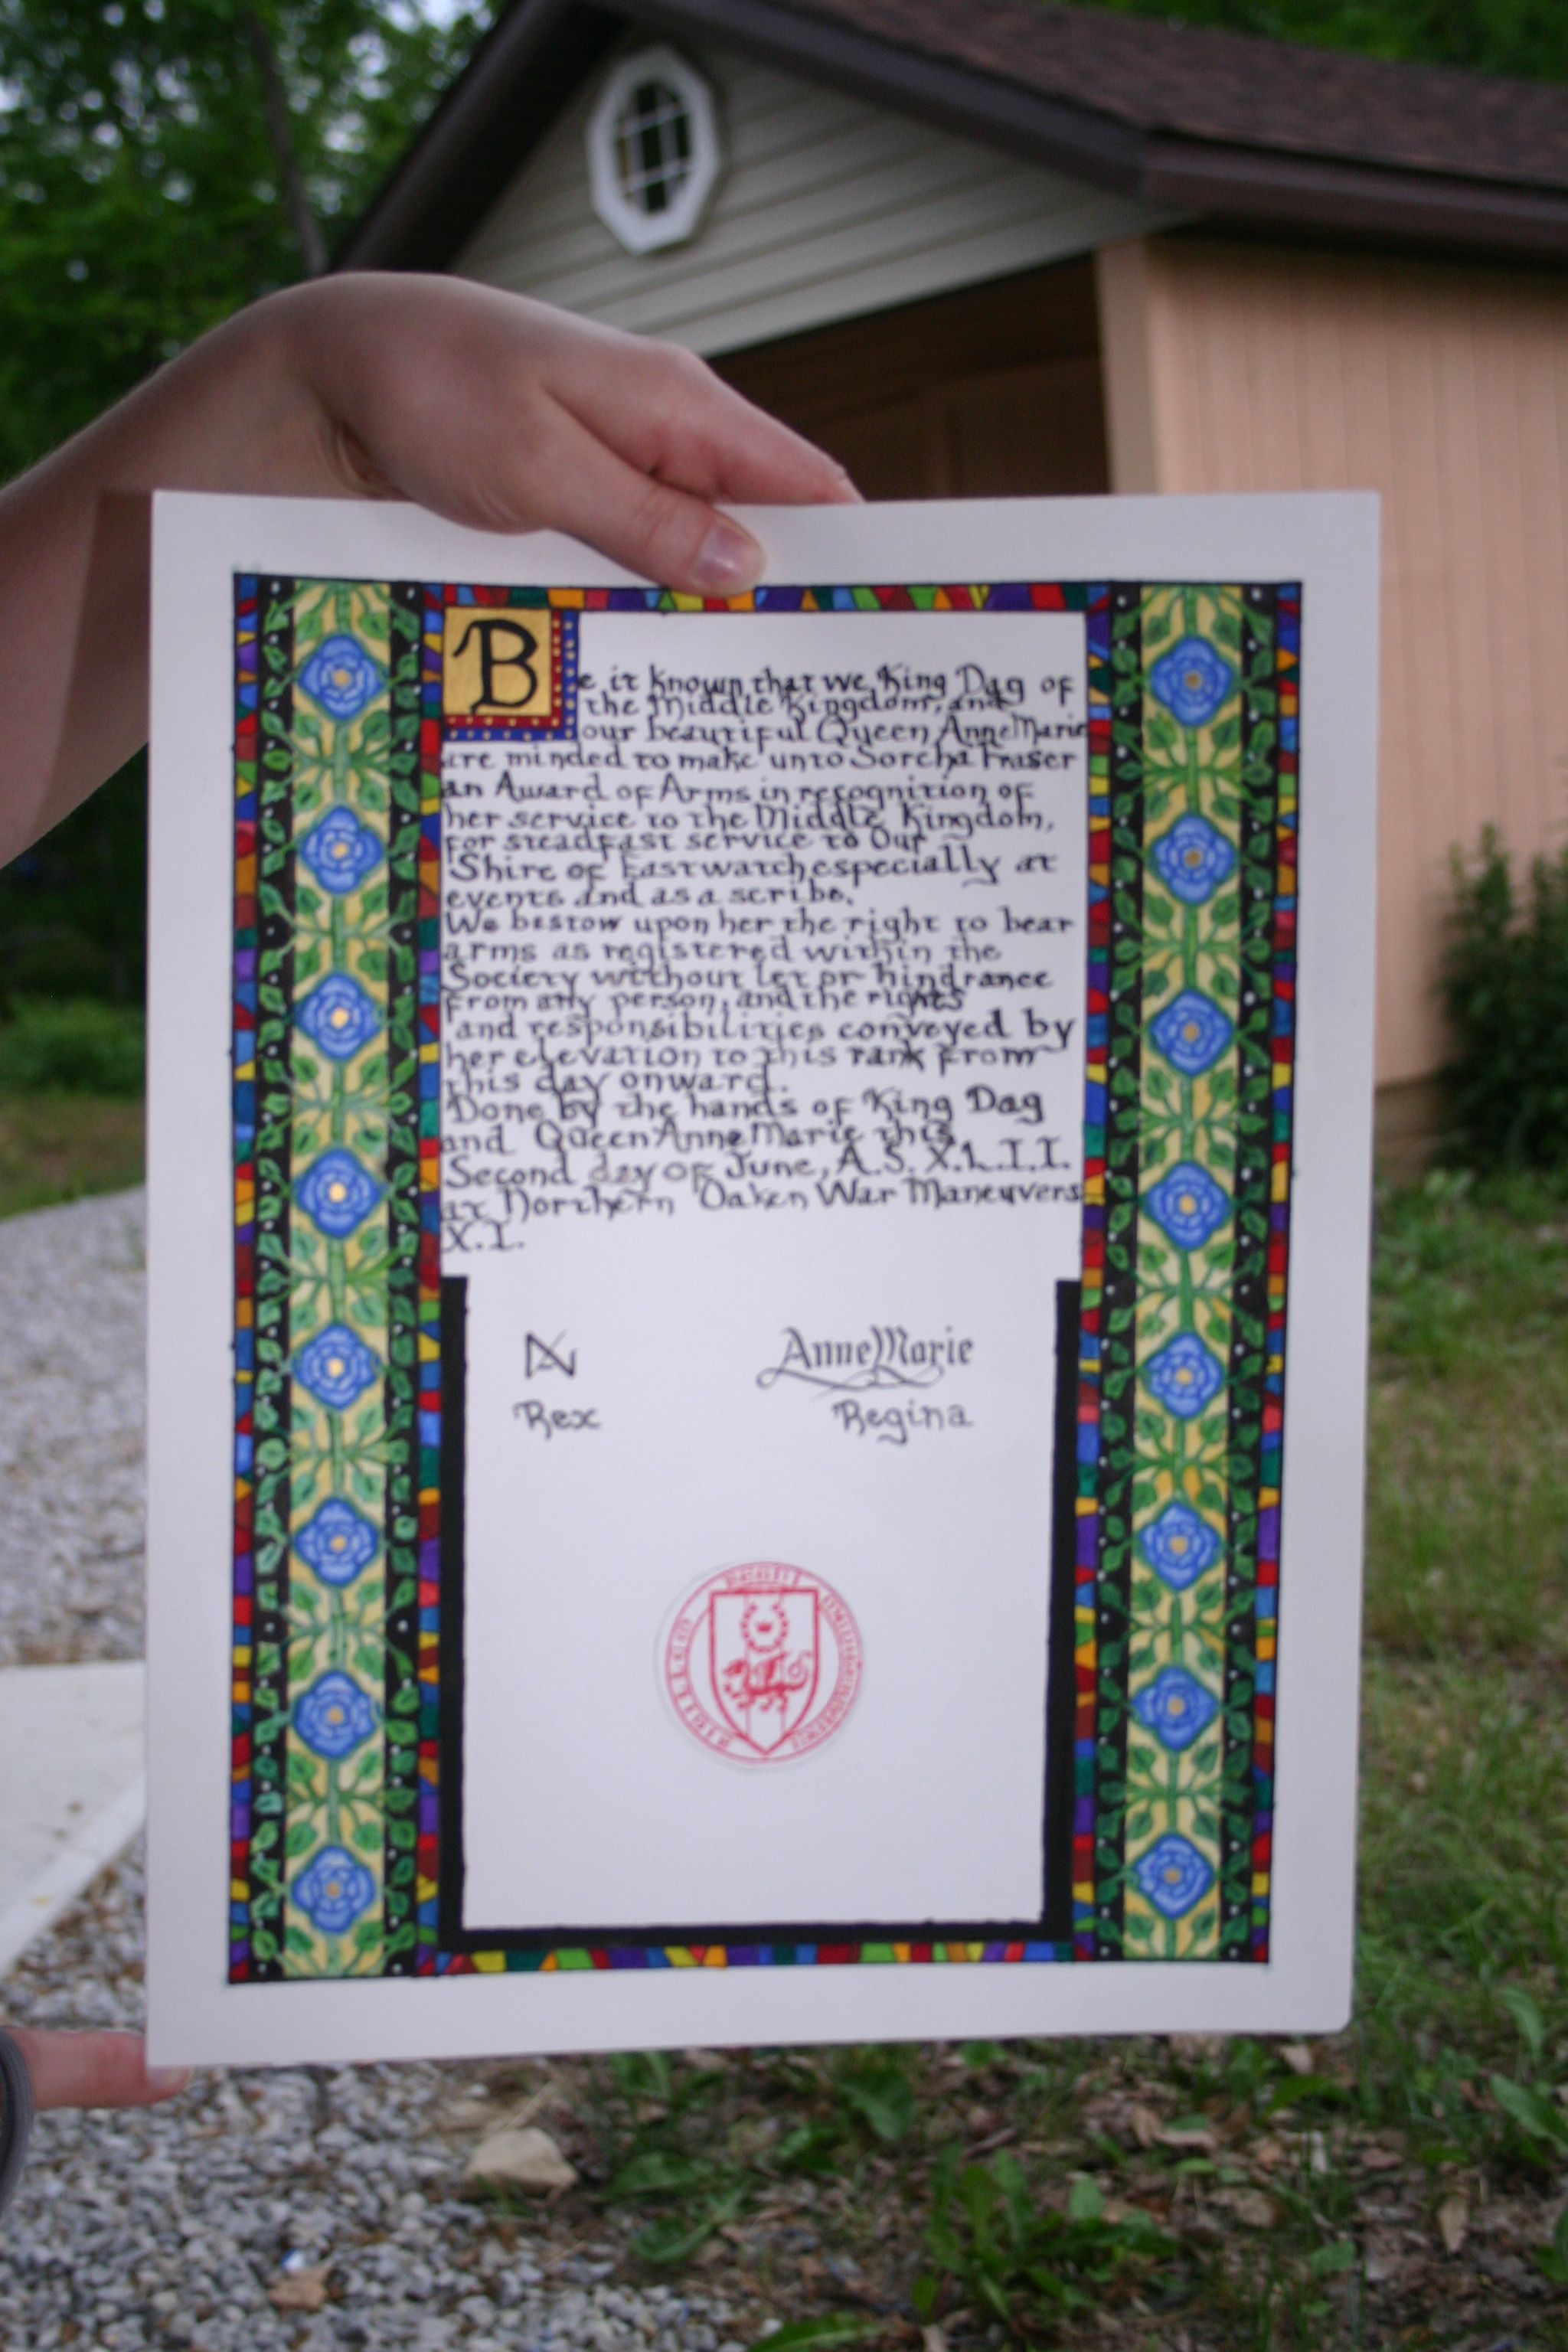 Be it known that we King Dag of
the Middle Kingdom, and
our beautiful Queen AnneMarie
are minded to make unto Sorcha Fraser
an Award of Arms in recognition of
her service to the Middle Kingdom,
for steadfast service to Our
Shire of Eastwatch especially at
events and as a scribe.
We bestow upon her the right to bear
arms as registered within the
Society without let or hindrance
from any person, and the rights
and responsibilities conveyed by
her elevation to this rank from
this day onward.
Done by the hands of King Dag
and Queen AnneMarie this
Second day of June, A.S. X.L.I.I.
at Northern Oaken War Maneuvers
X.I.
AnneMarie
Rex Regina
SIGILLUM